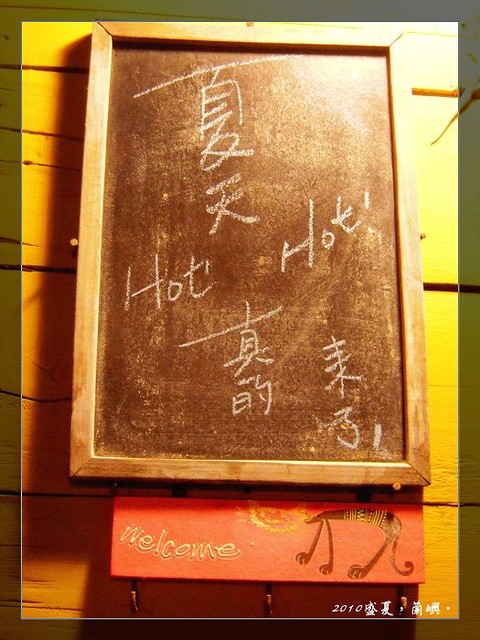 夏天
Hot!
Hot!
真的
來了!
welcome
2010盛夏，蘭嶼。